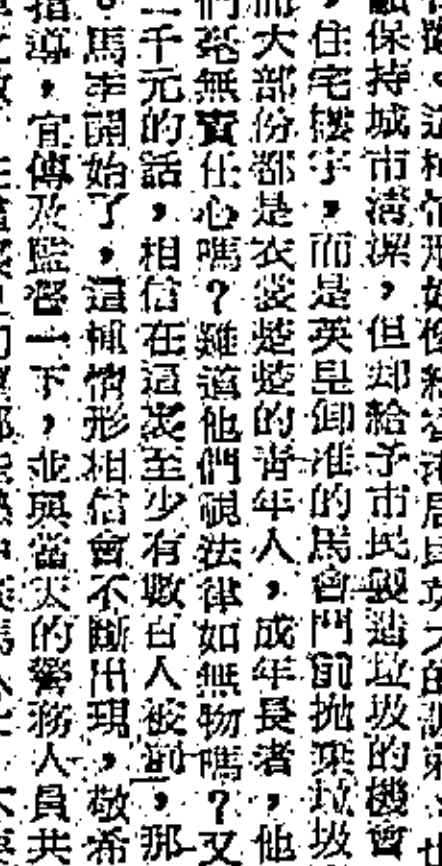 保持城市清潔，但却給予市民製造垃圾的機會
，住宅樓宇，而是英皇御准的馬會門前拋棄垃圾
大部份都是衣裳楚楚的青年人，成年長者，他
們毫無責任心嗎？難道他們視法律如無物嗎？又
二千元的話，相信在這裏至少有數百人被罰，那
。馬季開始了，這種情形相信會不斷出現，敬希
指導，宣傳及監督一下，並與當天的警務人員共